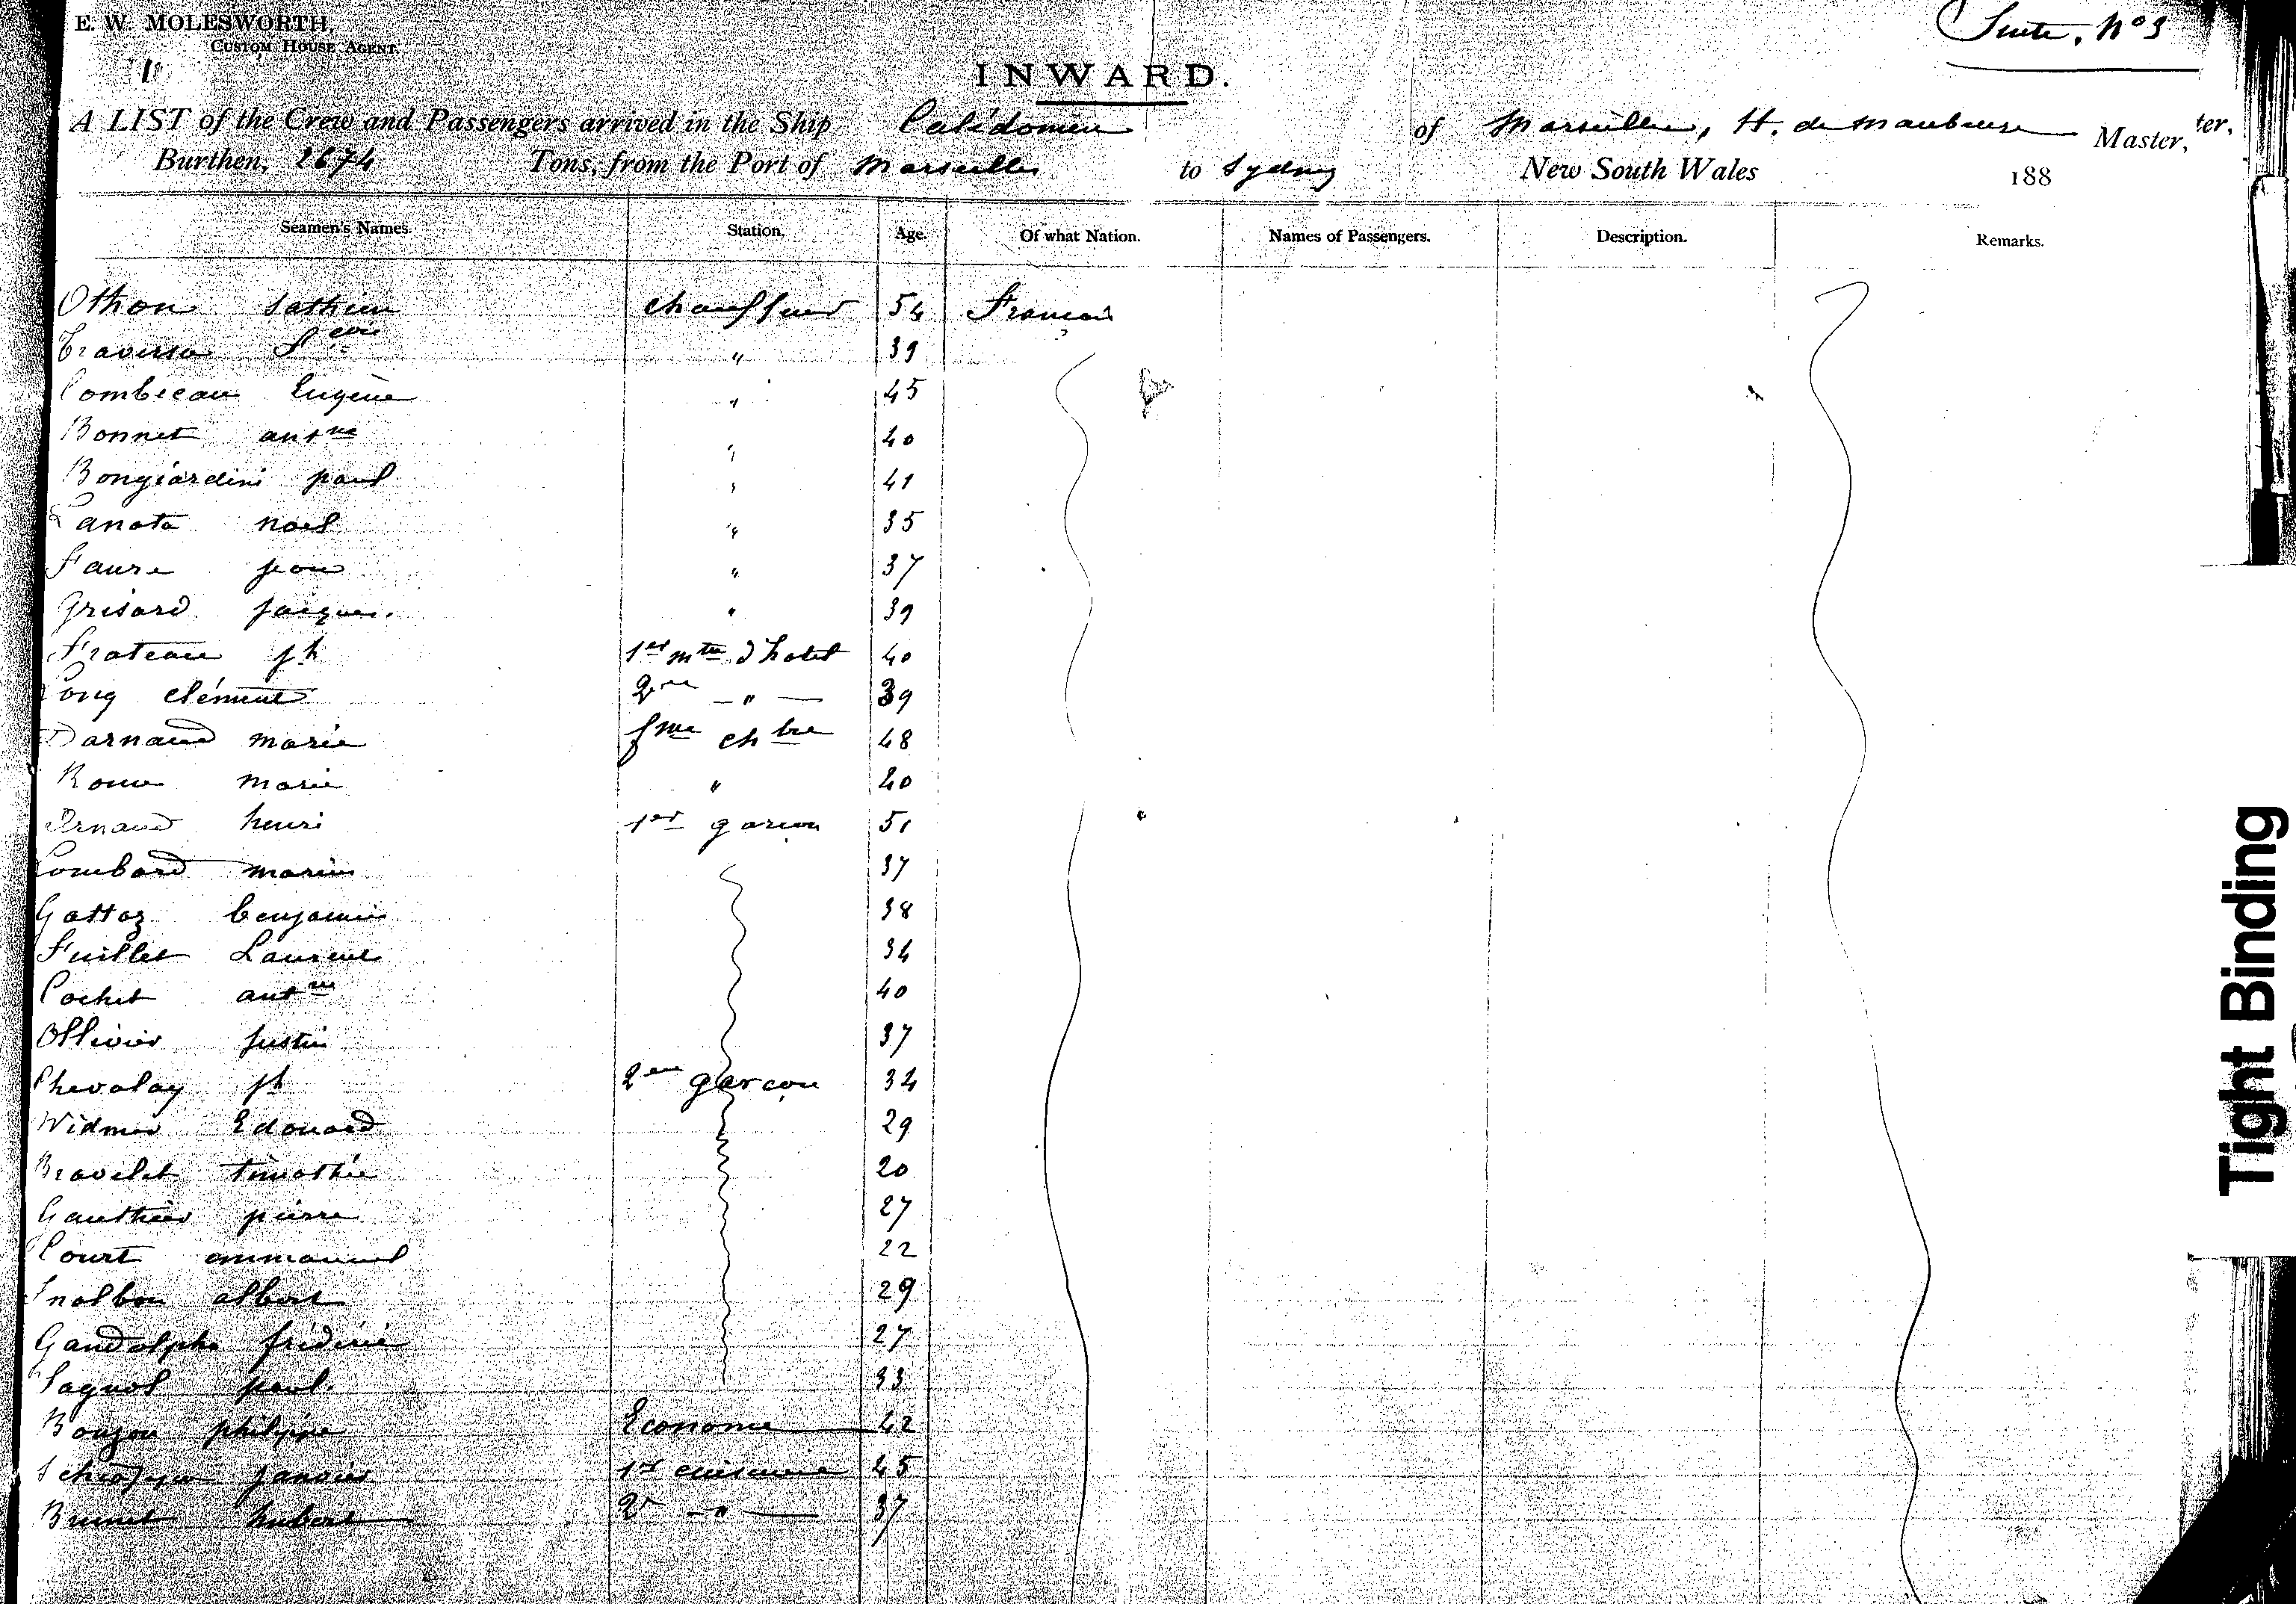 E. W. MOLESWORTH,
CUSTOM HOUSE AGENT.
Suite, No 3
INWARD.
A LIST of the Crew and Passengers arrived in the Ship Calédonien of Marseilles, H. de Maubeuge Master, ter,
Burthen, 2674 Tons, from the Port of Marseilles to Sydney New South Wales 188
Seamen's Names. Station. Age. Of what Nation. Names of Passengers. Description. Remarks.
Othon chauffeur 54 Francais
Traversa " 39
Combeau Eugène " 45
Bonnet antne " 40
Bongiardini paul " 41
Canota noel " 35
Faure jean " 37
Grisard jacques. " 39
Frateau jh 1er mtre d'hotel 40
Long clément 2me — " — 39
Darnaud marie fme chbre 48
Roux marie " 40
Arnaud henri 1er garcon 51
Lombard marius 37
Gottoz benjamin 38
Fuillet Laurent 34
Pochet antne 40
Ollivier justin 37
Chevalay jh 2me garcon 34
Widmer Edouard 29
Bravelet timothée 20
Gauthier pierre 27
Court emmanuel 22
albert 29
Gandolphe frédéric 27
Sagnol paul. 33
Boujou philippe Econome 42
janvier 1er cuisinier 45
Brunet hubert 2e — " — 37
Tight Binding